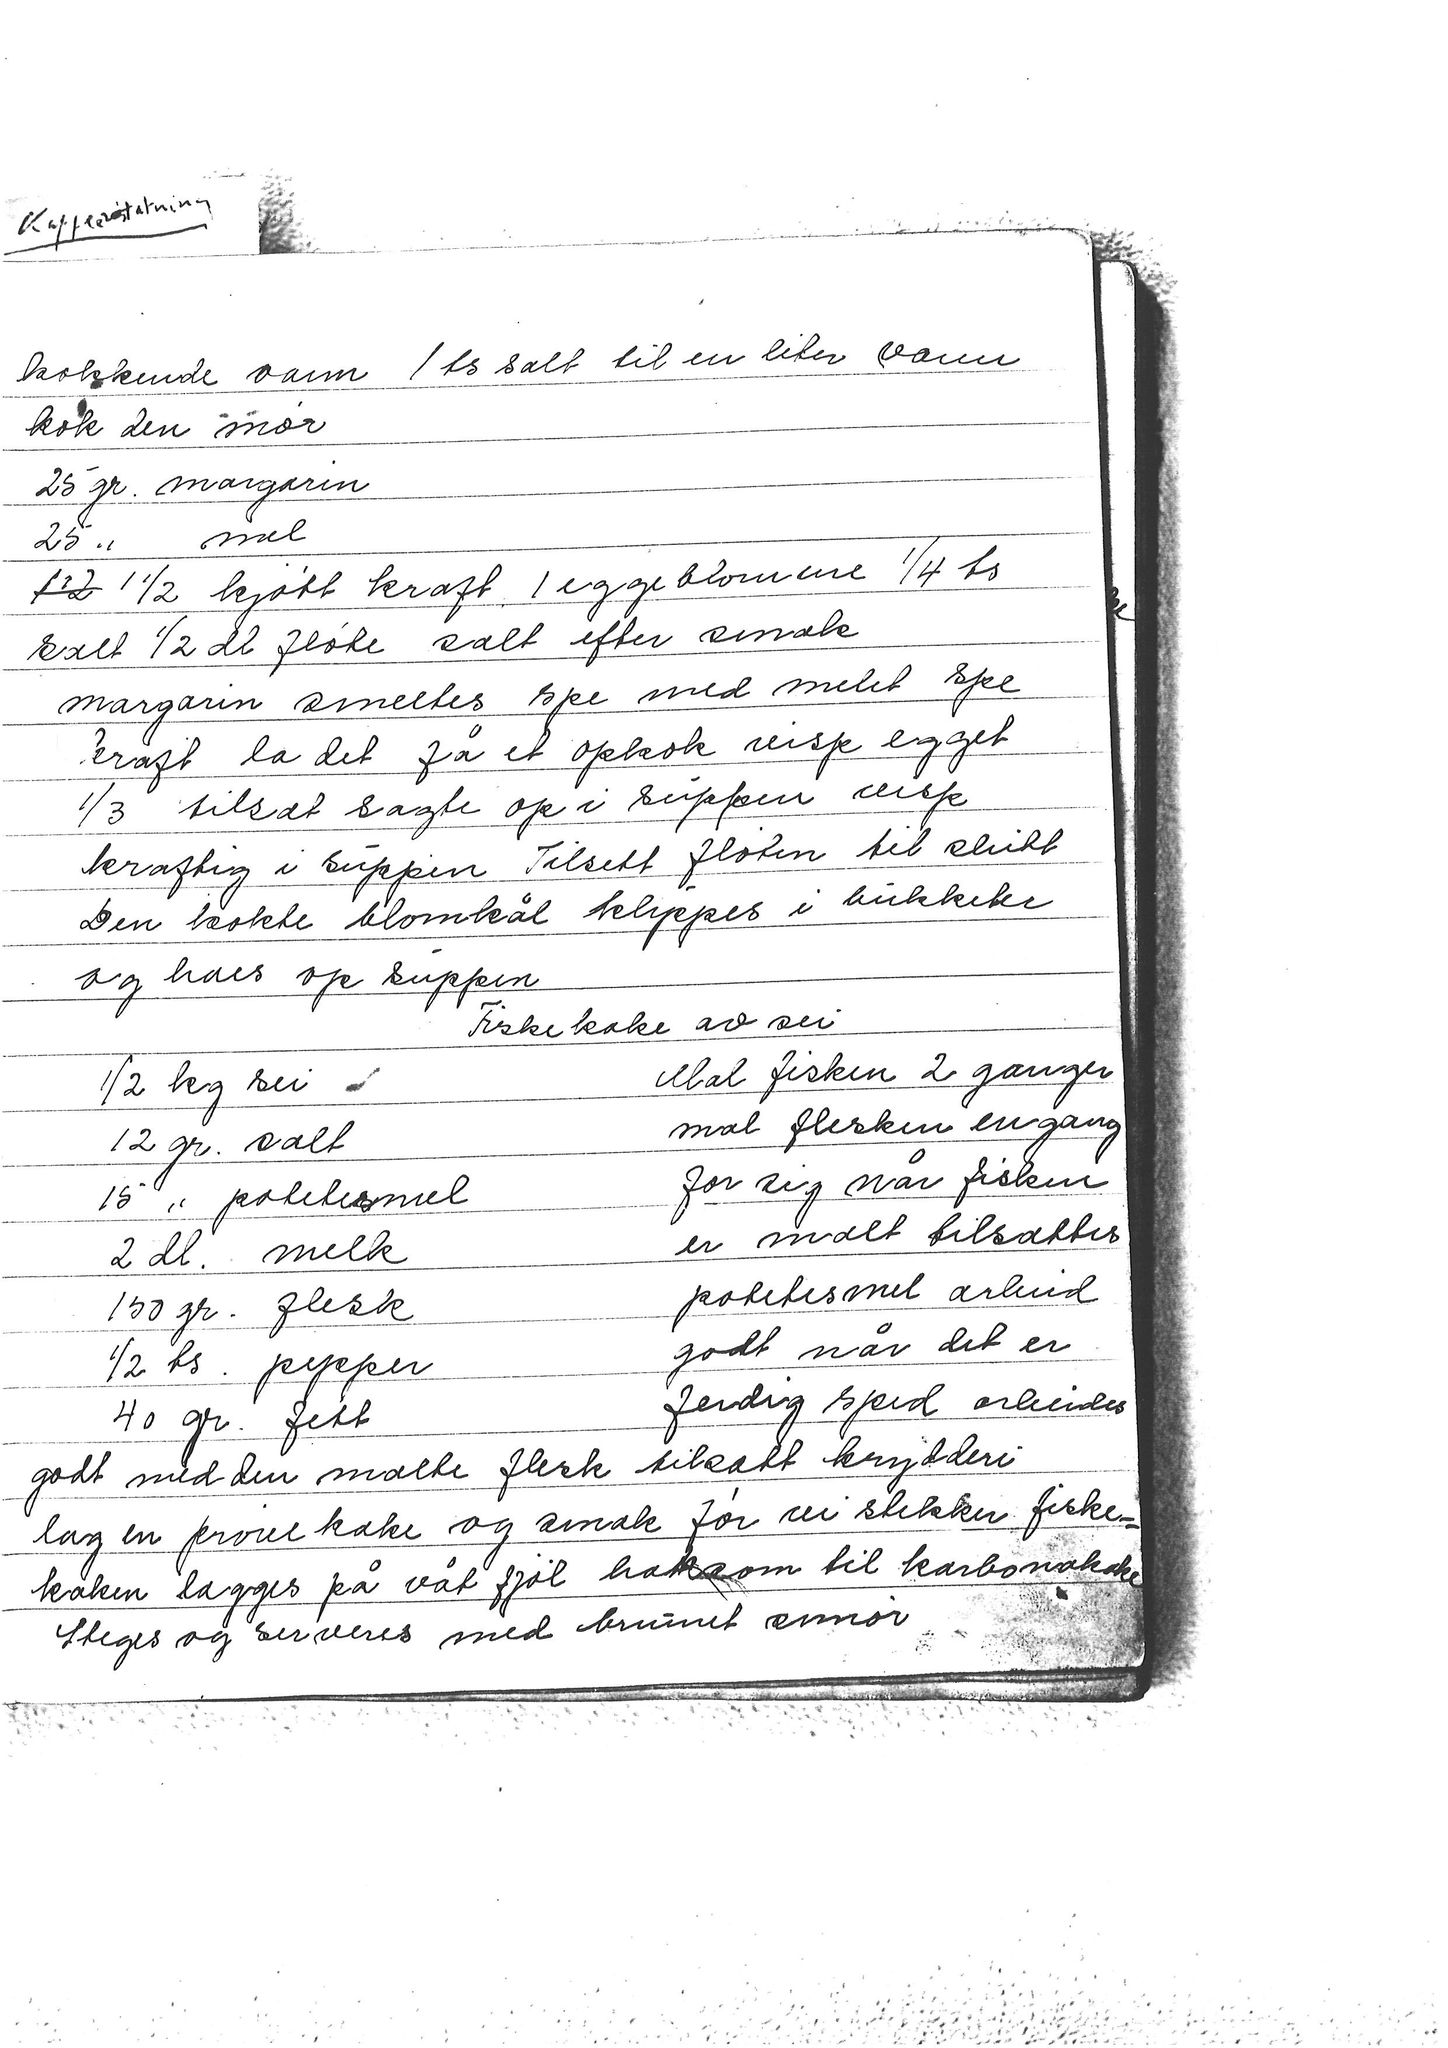 Kaffeerstatning
kokkende vann 1 ts salt til en liter vann
kok den mør
25 gr. margarin
25 " mel
1 1/2 kjøtt kraft. 1 eggeblomme 1/4 ts
salt 1/2 dl fløte salt efter smak
margarin smeltes spe med melet spe
kraft la det få et opkok visp egget
1/3 tilsat sagte op i suppen visp
kraftig i suppen Tilsett fløten til slutt
Den kokte blomkål klippes i bukketer
og haes op suppen
Fiskekake av sei
1/2 kg sei
12 gr. salt
15 " potetesmel
2 dl. melk
150 gr. flesk
1/2 ts. pepper
40 gr. fett
Mal fisken 2 ganger
mal flesken en gang
for sig når fisken
er malt tilsattes
potetesmel arbeid
godt når det er
ferdig sped arbeides
godt med den malte flesk tilsatt krydderi
lag en prøve kake og smak før vi stekker fiske=
kaken lagges på våt fjøl hak som til karbonakake
Steges og serveres med brunet smør